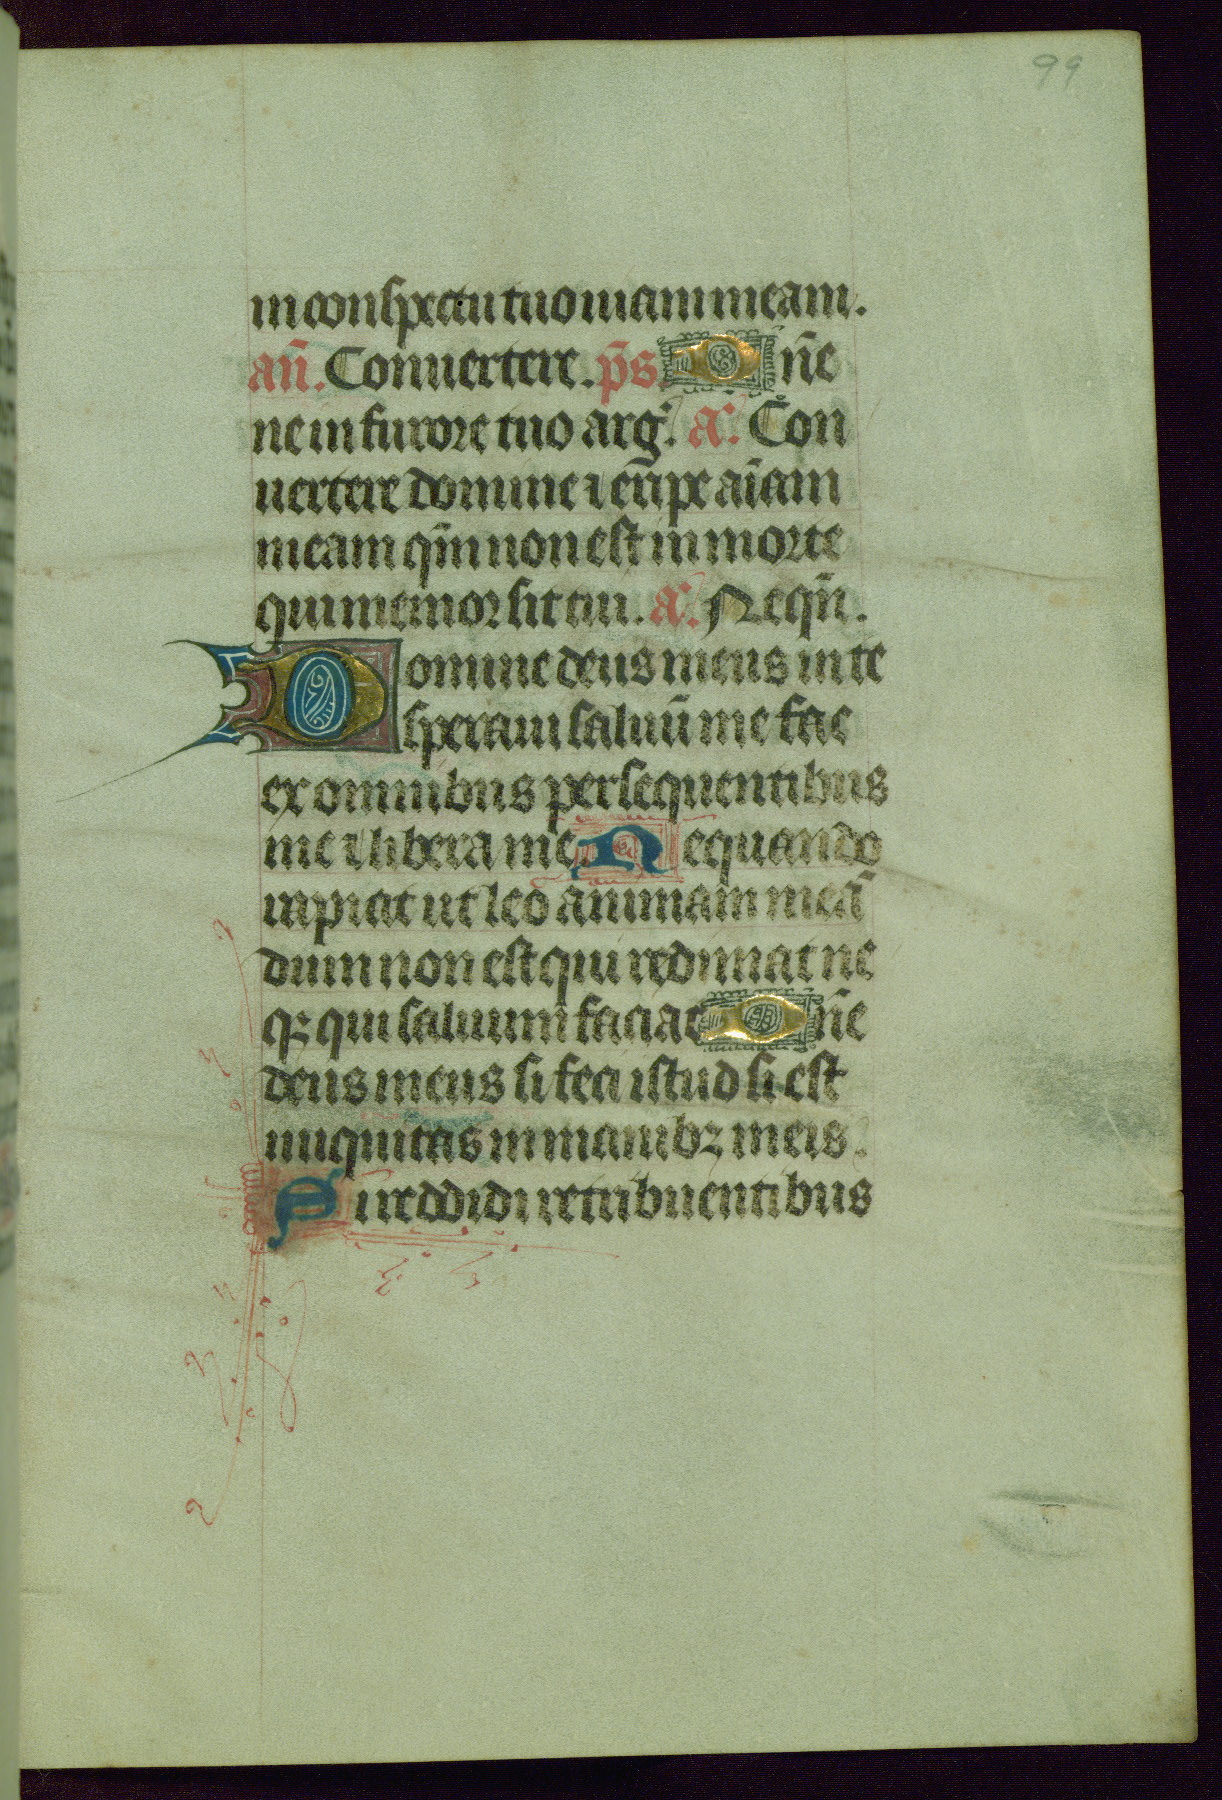 99
in conspectu tuo uiam meam.
an̄. Conuertere. p̄s. Dn̄e
ne in furore tuo arg. a. Con
uertere domine ⁊ erīpe aīam
meam qm̄ non est in morte
qui memor sit tui. a. Nequn̄.
Domine deus meus in te
speraui saluū me fac
ex omnibus persequentibus
me ⁊ libera me. Nequando
rapiat ut leo animam meā
dum non est qui redimat ne
qꝫ qui saluum faciat Dn̄e
deus meus si feci istud si est
iniquitas in manibꝫ meis.
Si reddidi retribuentibus